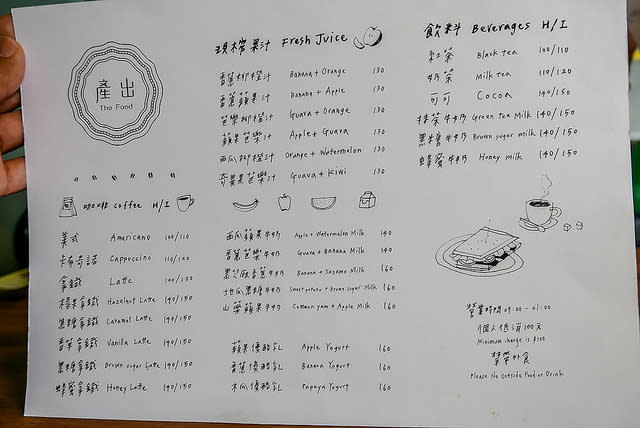 產出
The Food
咖啡 Coffee H/I
美式 Americano 100/110
卡布奇諾 Cappuccino 110/120
拿鐵 Latte 120/130
榛果拿鐵 Hazelnut Latte 140/150
焦糖拿鐵 Caramel Latte 140/150
香草拿鐵 Vanilla Latte 140/150
黑糖拿鐵 Brown sugar Latte 140/150
蜂蜜拿鐵 Honey Latte 140/150
現榨果汁 Fresh Juice
香蕉柳橙汁 Banana + Orange 130
香蕉蘋果汁 Banana + Apple 130
芭樂柳橙汁 Guava + Orange 130
蘋果芭樂汁 Apple + Guava 130
西瓜柳橙汁 Orange + Watermelon 130
奇異果芭樂汁 Guava + Kiwi 130
西瓜蘋果牛奶 Apple + Watermelon Milk 140
香蕉芭樂牛奶 Guava + Banana Milk 140
黑芝麻香蕉牛奶 Banana + Sesame Milk 160
地瓜黑糖牛奶 Sweet potato + Brown sugar Milk 160
山藥蘋果牛奶 Common yam + Apple Milk 160
蘋果優酪乳 Apple Yogurt 160
香蕉優酪乳 Banana Yogurt 160
木瓜優酪乳 Papaya Yogurt 160
飲料 Beverages H/I
紅茶 Black tea 100/110
奶茶 Milk tea 110/120
可可 Cocoa 140/150
抹茶牛奶 Green tea Milk 140/150
黑糖牛奶 Brown sugar milk 140/150
蜂蜜牛奶 Honey milk 140/150
營業時間 09:00-21:00
個人低消100元
Minimum charge is $100
禁帶外食
Please No Outside Food or Drink